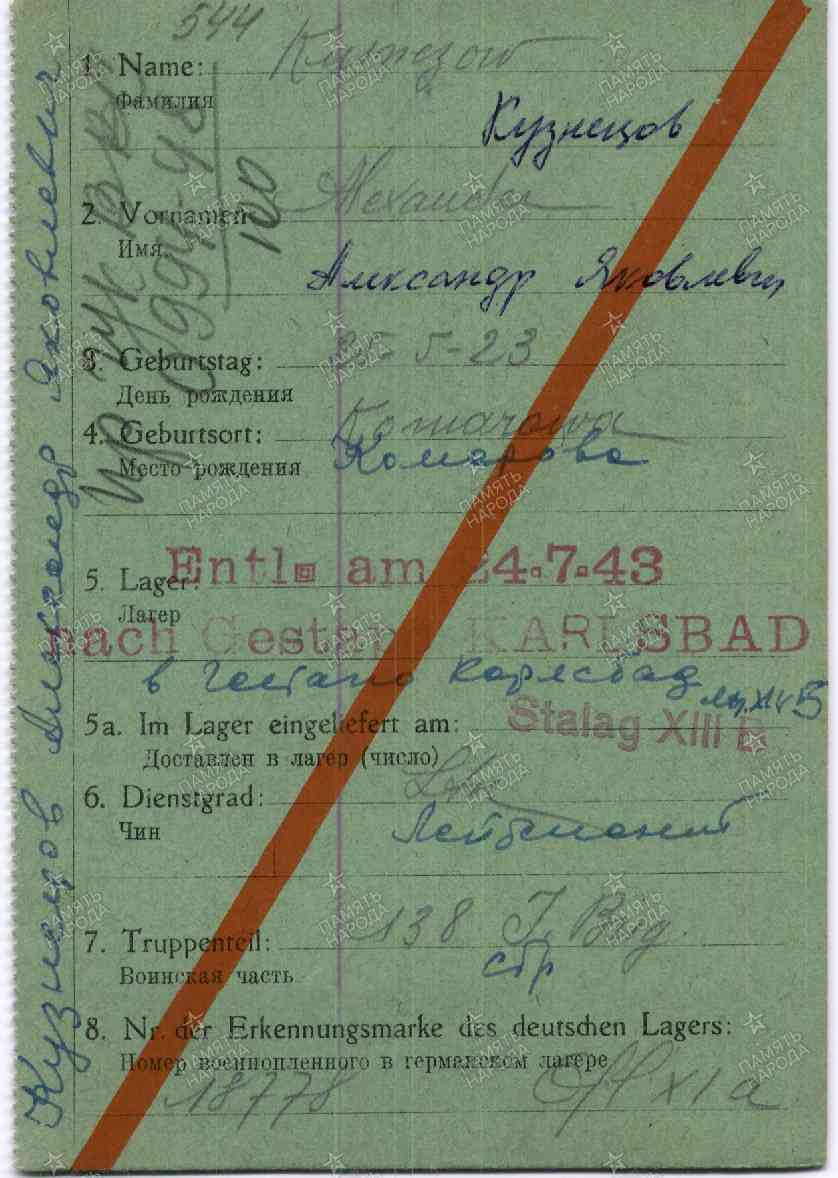 544
1. Name: Kusnezow
Фамилия
Кузнецов
2. Vornamen: Alexander
Имя
Александр Яковлевич
3. Geburtstag: 5-23
День рождения
4. Geburtsort: Komarowa
Место рождения Комарова
5. Lager: Entl. am 24.7.43
Лагер
nach Gestapo KARLSBAD
в гестапо Карлсбад
5a. Im Lager eingeliefert am: Stalag XIII B
Доставлен в лагер (число)
6. Dienstgrad: Ltn
Чин Лейтенант
7. Truppenteil: 138 J. Brg.
Воинская часть стр
8. Nr. der Erkennungsmarke des deutschen Lagers:
Номер военнопленного в германском лагере
18778 Ofl XIa
Кузнецов Александр Яковлевич
100
ПАМЯТЬ НАРОДА